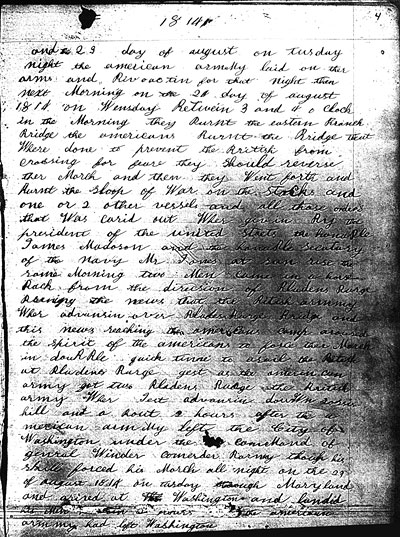 1814
4
and 23 day of august on tusday
night the american armmy laid on ther
arms and Rivoactin for that night then
next Morning on the 24 day of august
1814 on Wensday Betwein 3 and 4 o Clock
in the Morning they Burnt the eastern Branch
Bridge the americans Burnt the Bridge that
Where done to prevent the British from
Crossing for feare they Should reverse
ther March and then they Went forth and
Burnt the Sloop of War on the Stocks and
one or 2 other vessels and all those orders
that Was carid out Wher given By the
president of the united States the honorable
James Madoson and the honorable Secatary
of the Navy Mr Jones at sun rise the
same Morning two Men came in a horse
Back from the direction of Bladens Burge
the news that the armmy
Wher advansin over Bladens Burge Bridge and
this news reaching the american camp around
the Spirit of the americans to force ther March
in douBBle quick time to the
at Bladenes Burge Jest as the american
army got two Bladens Burge the British
army Wher Jest advansin down
hill and a bout 2 hours after the a
merican armmy left the City of
Washington under the comMand of
general Winder comerder Barney
forced his March all night on the 23
of august 1814 on tusday through Maryland
and arived at Washington and landid
his Men hours the american
armmy had left Washington